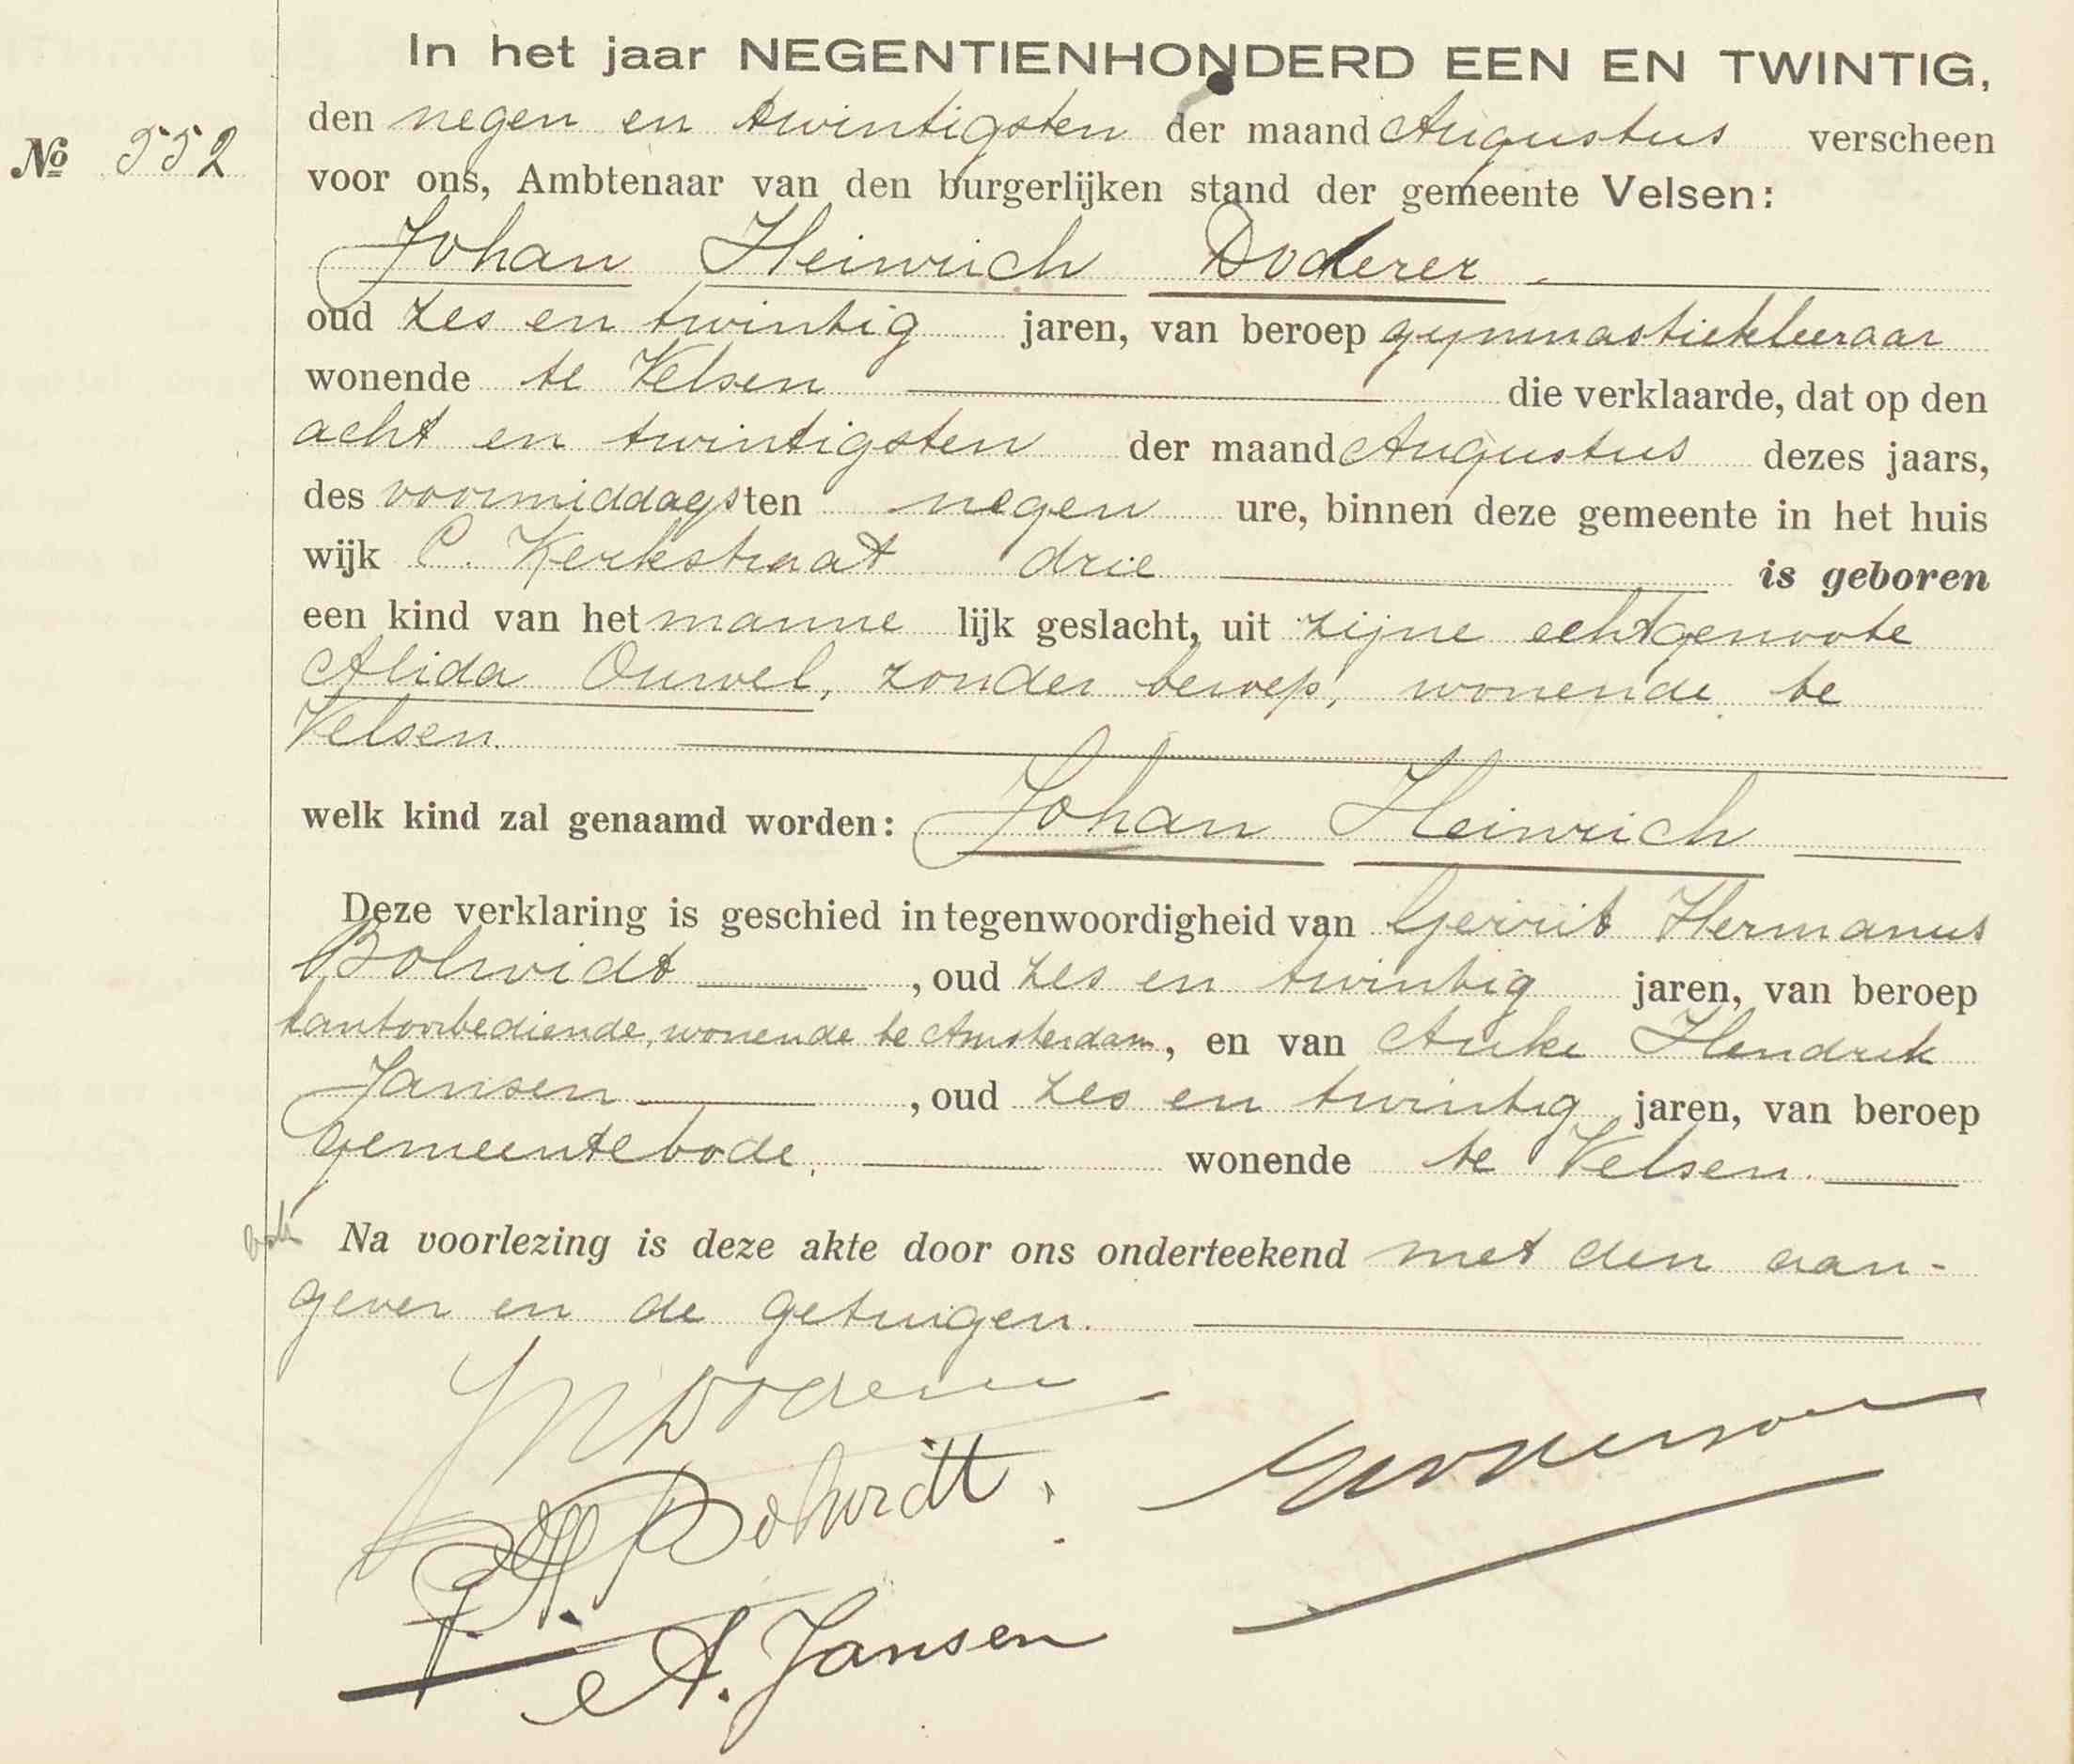 In het jaar NEGENTIENHONDERD EEN EN TWINTIG,
den negen en twintigsten der maand Augustus verscheen
No 552
voor ons, Ambtenaar van den burgerlijken stand der gemeente Velsen:
Johan Heinrich Doderer
oud zes en twintig jaren, van beroep gymnastiekleeraar
wonende te Velsen die verklaarde, dat op den
acht en twintigsten der maand Augustus dezes jaars,
des voormiddags ten negen ure, binnen deze gemeente in het huis
wijk C. Kerkstraat drie is geboren
een kind van het manne lijk geslacht, uit zijne echtgenoote
Alida Ouwel, zonder beroep, wonende te
Velsen.
welk kind zal genaamd worden: Johan Heinrich
Deze verklaring is geschied in tegenwoordigheid van Gerrit Hermanus
Bohridt, oud zes en twintig jaren, van beroep
kantoorbediende, wonende te Amsterdam, en van Auke Hendrik
Jansen, oud zes en twintig jaren, van beroep
gemeentebode, wonende te Velsen.
Na voorlezing is deze akte door ons onderteekend met den aan-
gever en de getuigen.
JH Doderer
GH Bohridt.
A. Jansen